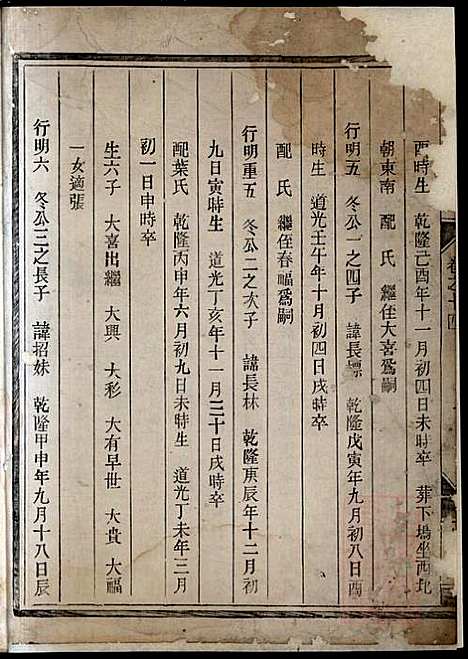 酉時生　乾隆己酉年十一月初四日未時卒　葬下塢坐西北
朝東南　配　氏　繼侄大喜爲嗣
行明五　冬公一之四子　諱長標　乾隆戊寅年九月初八日酉
時生　道光壬午年十月初四日戌時卒
配　氏　繼侄春福爲嗣
行明重五　冬公二之次子　諱長林　乾隆庚辰年十二月初
九日寅時生　道光丁亥年十一月二十日戌時卒
配葉氏　乾隆丙申年六月初九日未時生　道光丁未年三月
初一日申時卒
生六子　大喜出繼　大興　大彩　大有早世　大貴　大福
一女適張
行明六　冬公三之長子　諱招妹　乾隆甲申年九月十八日辰
卷之十四